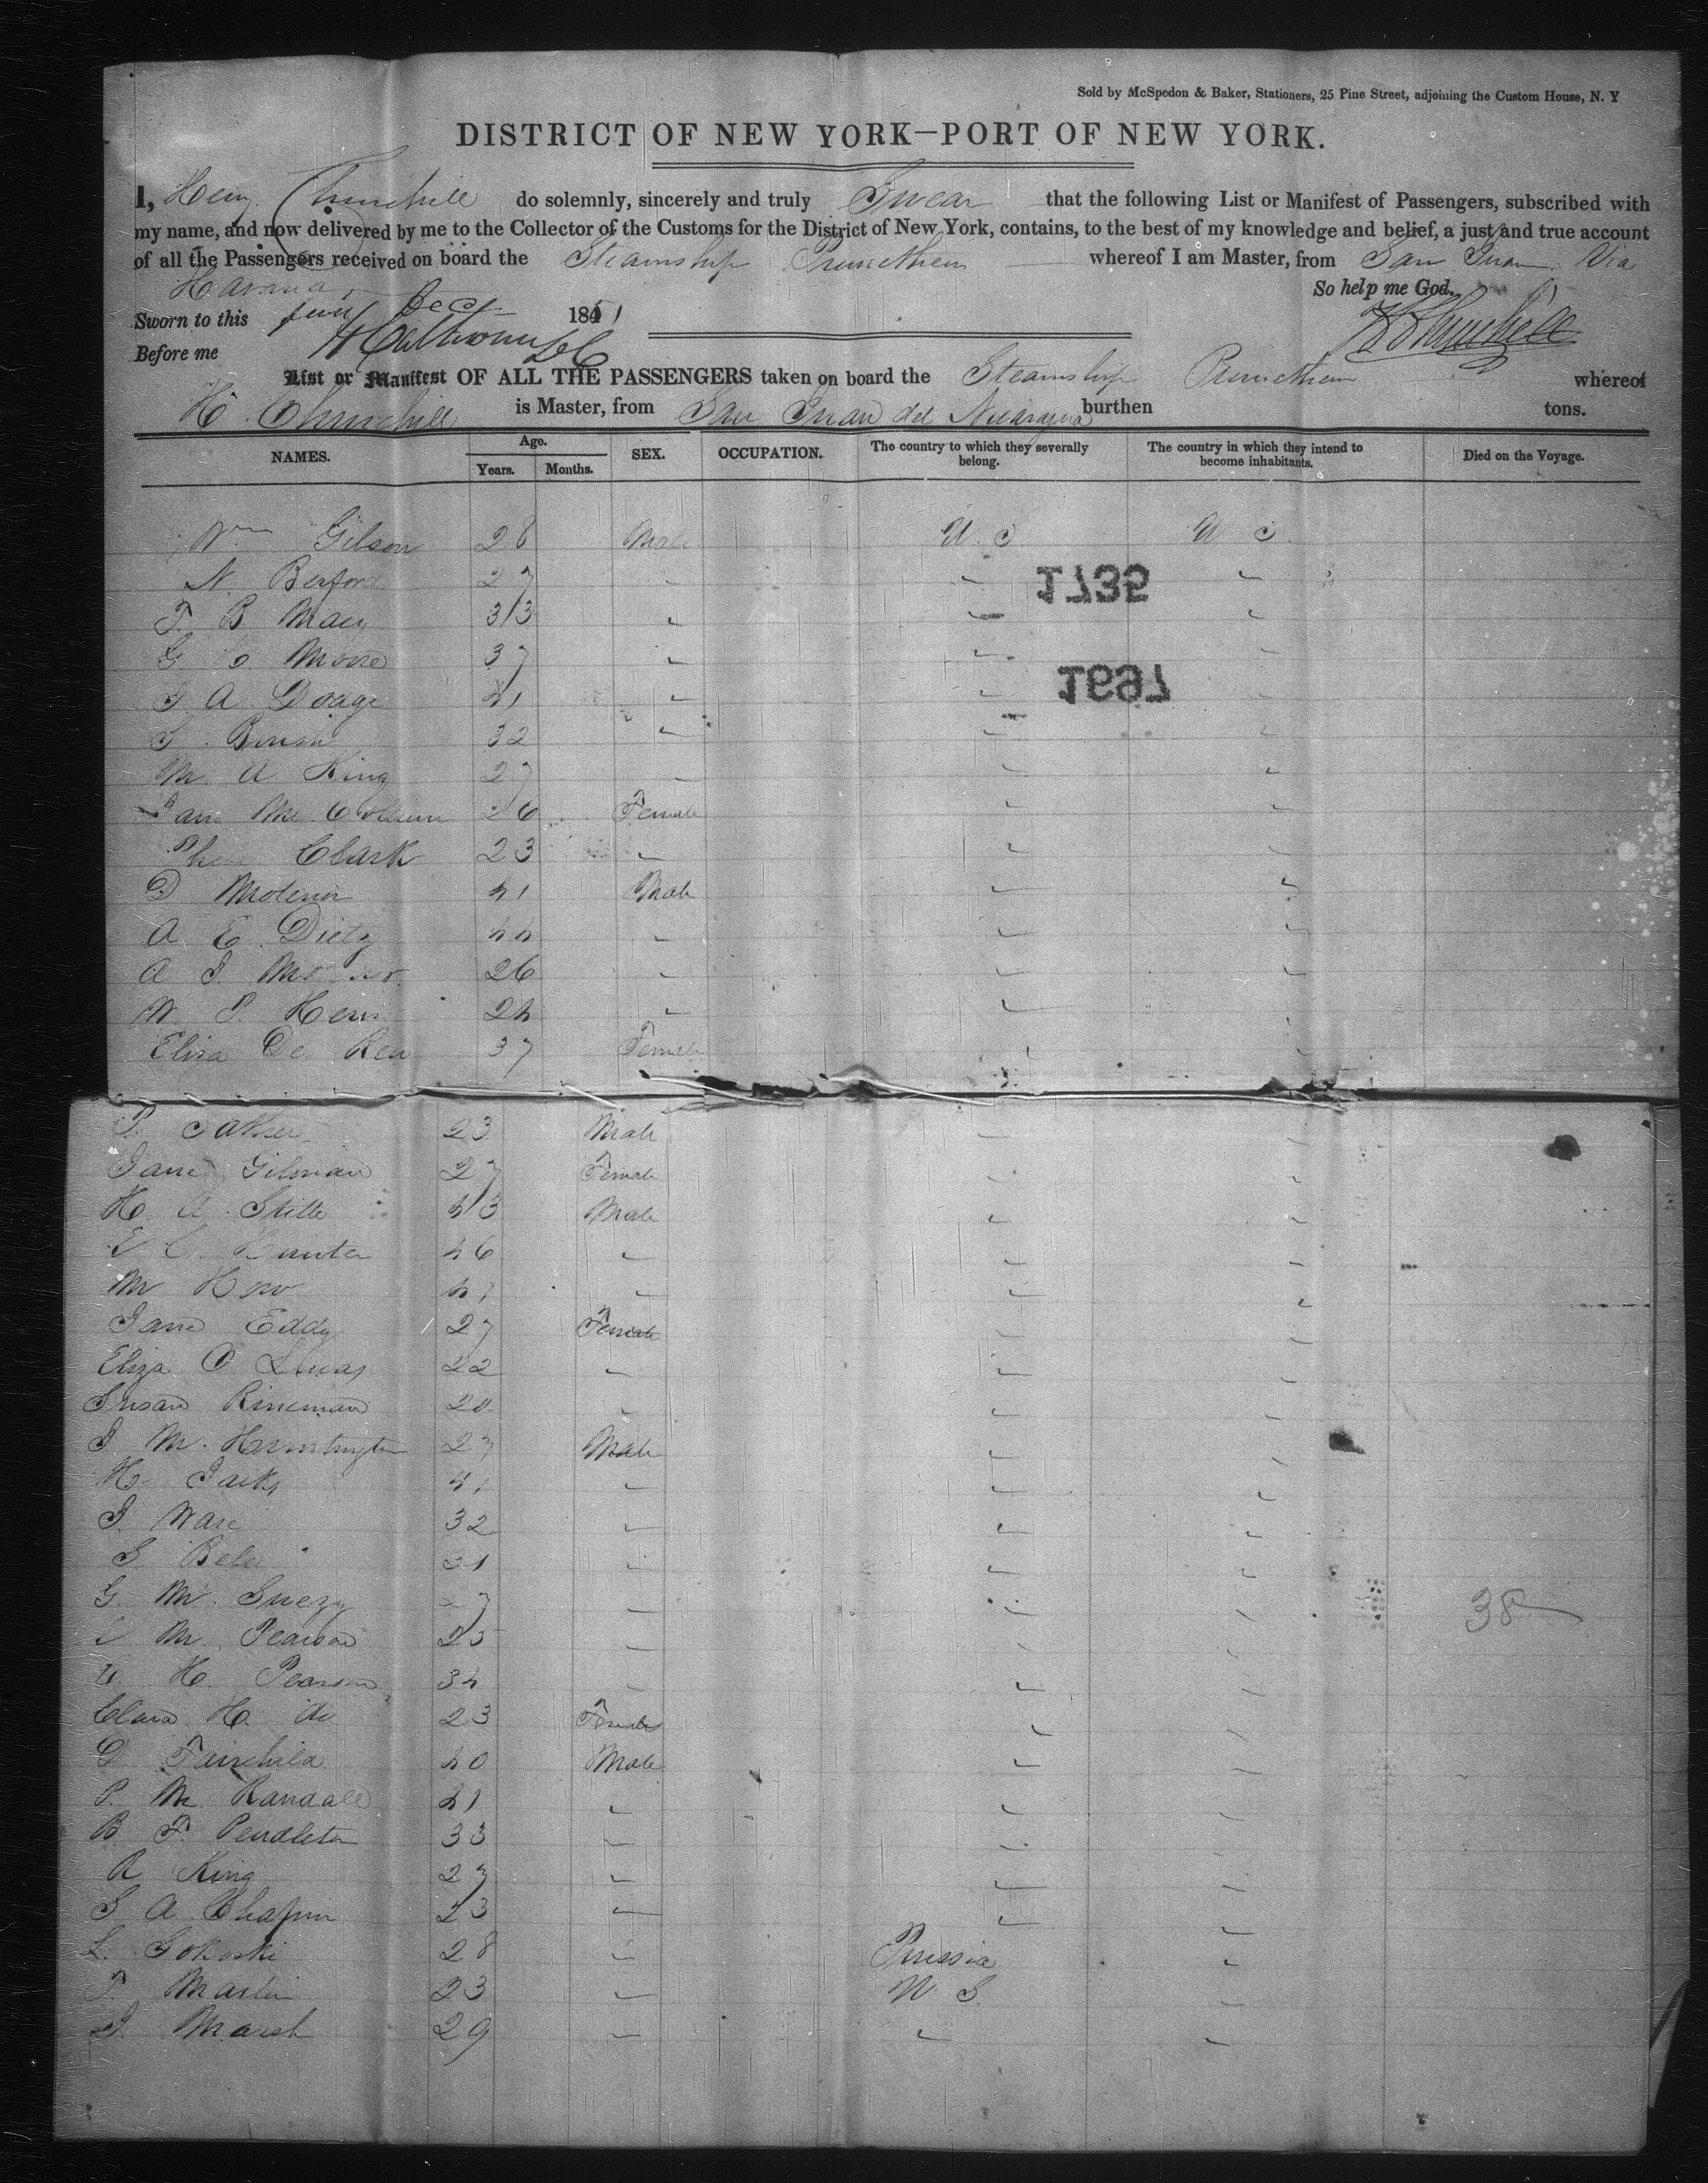 Sold by McSpedon & Baker, Stationers, 25 Pine Street, adjoining the Custom House, N. Y
DISTRICT OF NEW YORK—PORT OF NEW YORK.
I, Henry Churchill do solemnly, sincerely and truly Swear that the following List or Manifest of Passengers, subscribed with
my name, and now delivered by me to the Collector of the Customs for the District of New York, contains, to the best of my knowledge and belief, a just and true account
of all the Passengers received on board the Steamship Prometheus whereof I am Master, from San Juan Via
Havana So help me God.
Sworn to this Decr 1851 H Churchill
Before me
List or Manifest OF ALL THE PASSENGERS taken on board the Steamship Prometheus whereof
H. Churchill is Master, from San Juan del Nicaragua burthen tons.
NAMES. Age. Years. Months. SEX. OCCUPATION. The country to which they severally belong. The country in which they intend to become inhabitants. Died on the Voyage.
Wm Gilson 28 Male U S U S
N. Berford 27
1735
F. B. Macy 33
G. Moore 37
1697
J. A. Dodge 41
32
M. A King 27
Jane 26 Female
Clark 23
D 41 Male
A E. Dietz 44
A J. 26
W. P. 24
Eliza De 37 Female
P. 23 Male
Jane Gilman 27 Female
H. A. Stille 43 Male
E C. Hunter 46
M How 41
Jane Eddy 27 Female
Eliza D Lucas 22
Susan Rineman 20
J M. Huntington 27 Male
H. Jacks 41
J. Ware 32
S. 31
G. M. 27
M. Pearson 25
H. Pearson 34
Clara H. do 23 Female
D Fairchild 40 Male
P. M Randall 41
B. F. Pendleton 33
R King 27
S A Chapin 23
L. Gokoski 28 Prussia
F. Martin 23 U S.
J. Marsh 29
38